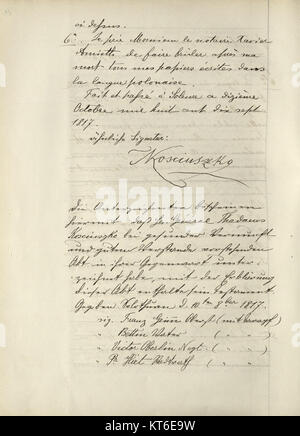 ci dessus.
6. Je prie Monsieur le notaire Xavier
Amiette de faire brûler après ma
mort tous mes papiers écrites dans
la langue polonaise.
Fait et passé à Soleure ce dizième
Octobre mil huit cent dix sept
1817.
Signatur:
TKosciuszko
Die Unterzeichneten bescheinen
hiermit daß Hr General Thadaeus
Kosciuszko bei gesunder Vernunft
und guten Verstande vorstehenden
Akt in ihrer Gegenwart unter-
zeichnet habe, mit der Erklärung
dieser Akt enthalte sein Testament.
Gegeben Solothurn d. 10ten 8ber 1817.
sig. Franz
"
" Victor Oberlin Negt.
"
alamy
Image ID: KT6E9W
www.alamy.com